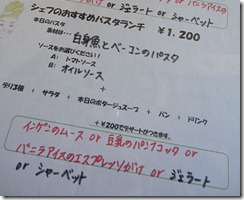 がけ or ジェラート or シャーベット
バニラアイスの
シェフのおすすめパスタランチ ¥1.200
本日のパスタ
素材は‥‥ 白身魚とベーコンのパスタ
ソースをお選びください!!
A: トマトソース
B: オイルソース
+
デリ3種 + サラダ + 本日のポタージュスープ + パン + ドリンク
+¥200でデザートがつきます。
インゲンのムース or 豆乳のパンナコッタ or
バニラアイスのエスプレッソがけ or ジェラート
or シャーベット